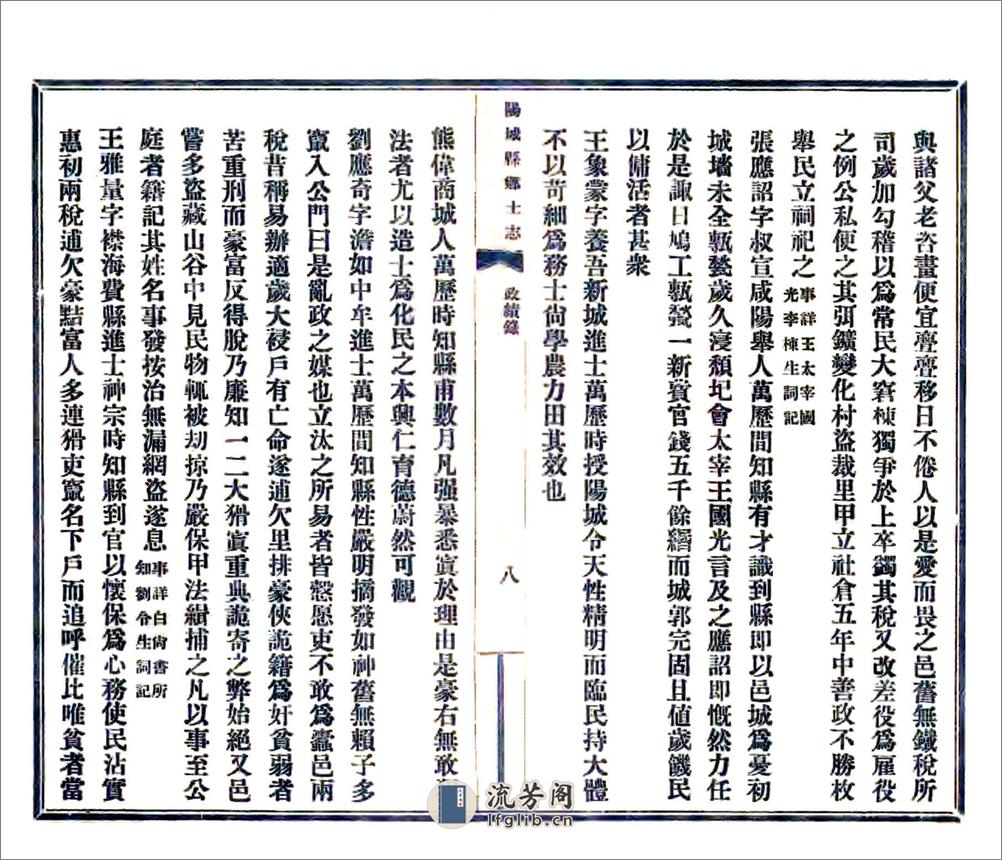 與諸父老咨畫便宜亹亹移日不倦人以是愛而畏之邑舊無鐵稅所
司歲加勾稽以爲常民大窘棟獨爭於上卒蠲其稅又改差役爲雇役
之例公私便之其弭鑛變化村盜裁里甲立社倉五年中善政不勝枚
舉民立祠祀之事詳王太宰國光李棟生詞記
張應詔字叔宣咸陽舉人萬歷間知縣有才識到縣即以邑城爲憂初
城墻未全甎甃歲久寖頹圮會太宰王國光言及之應詔即慨然力任
於是諏日鳩工甎甃一新賓官錢五千餘緡而城郭完固且値歲饑民
以傭活者甚衆
王象蒙字養吾新城進士萬歷時授陽城令天性精明而臨民持大體
不以苛細爲務士尙學農力田其效也
陽城縣鄕土志
政績錄
八
熊偉商城人萬歷時知縣甫數月凡强暴悉寘於理由是豪右無敢
法者尤以造士爲化民之本興仁育德蔚然可觀
劉應奇字澹如中牟進士萬歷間知縣性嚴明摘發如神舊無賴子多
竄入公門曰是亂政之媒也立汰之所易者皆慤愿吏不敢爲蠹邑兩
稅昔稱易辦適歲大祲戶有亡命遂逋欠里排豪俠詭籍爲奸貧弱者
苦重刑而豪富反得脫乃廉知一二大猾寘重典詭寄之弊始絕又邑
嘗多盜藏山谷中見民物輒被刦掠乃嚴保甲法緝捕之凡以事至公
庭者籍記其姓名事發按治無漏網盜遂息事詳白尙書所知劉令生詞記
王雅量字襟海費縣進士神宗時知縣到官以懷保爲心務使民沾實
惠初兩稅逋欠豪黠富人多連猾吏竄名下戶而追呼催比唯貧者當
流芳阁
lfglib.cn